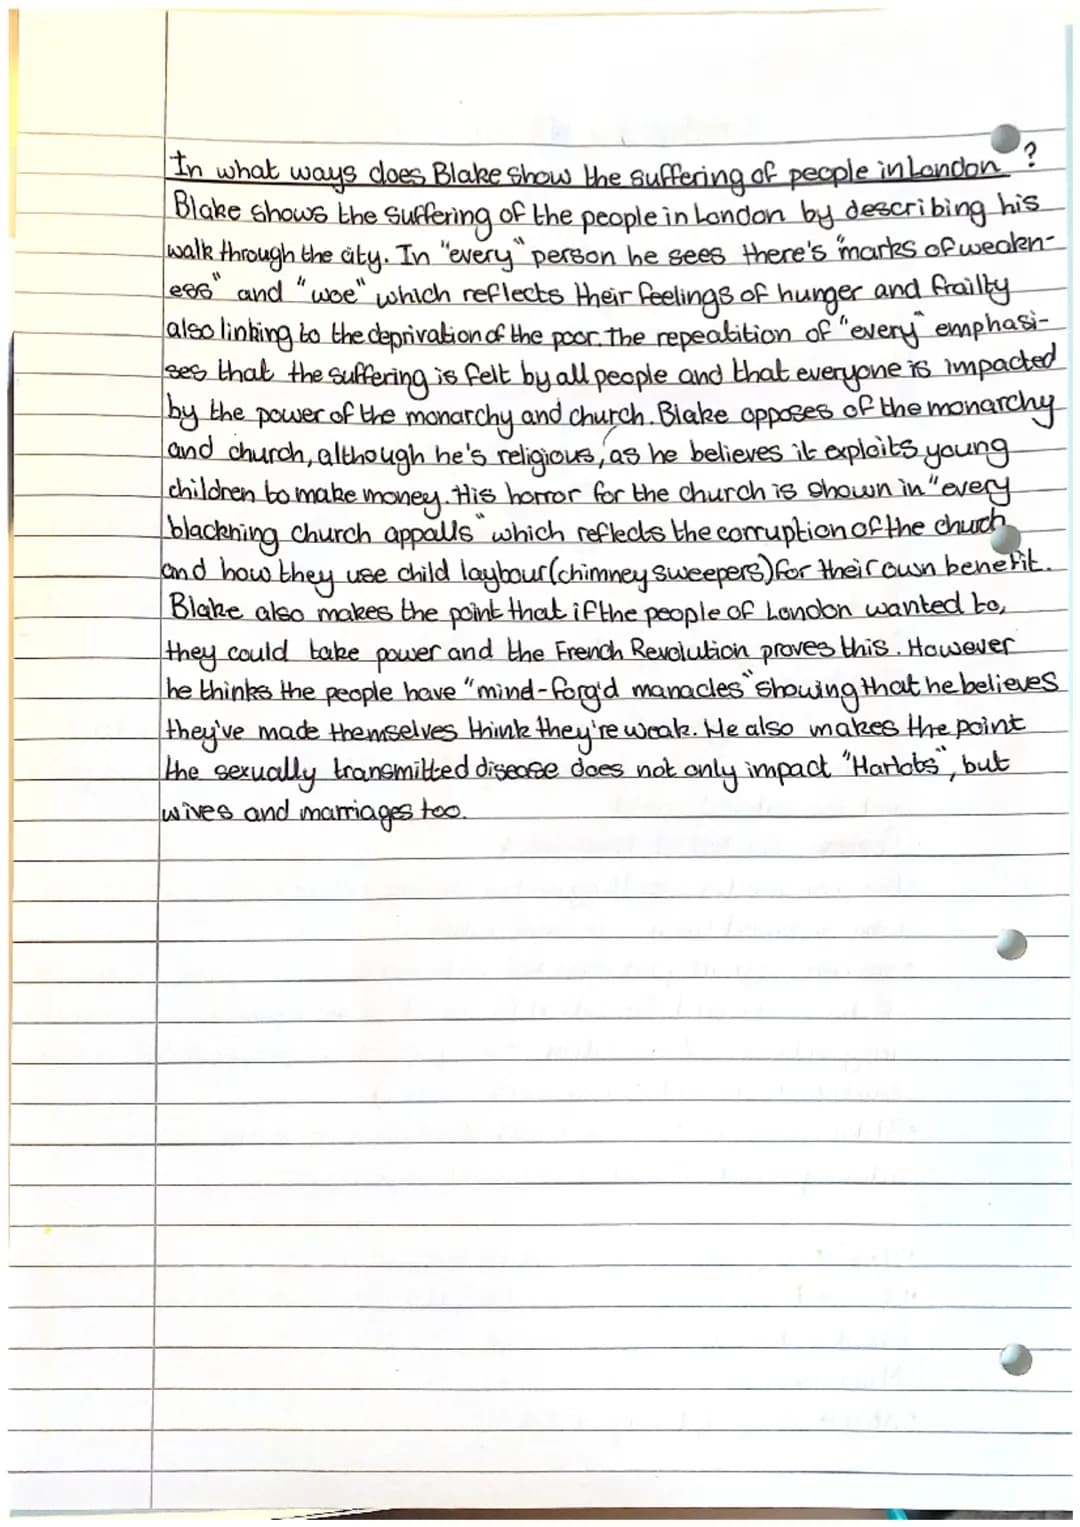 In what ways does Blake show the suffering of people in London ?
Blake shows the suffering of the people in London by describing his
walk through the city. In "every" person he sees there's "marks of weakn-
ess" and "woe" which reflects their feelings of hunger and frailty
also linking to the deprivation of the poor. The repeatition of "every" emphasi-
ses that the suffering is felt by all people and that everyone is impacted
by the power of the monarchy and church. Blake opposes of the monarchy
and church, although he's religious, as he believes it exploits young
children to make money. His horror for the church is shown in "every
blackning church appalls" which reflects the corruption of the church
and how they use child laybour (chimney sweepers) for their own benefit.
Blake also makes the point that if the people of London wanted to,
they could take power and the French Revolution proves this. However
he thinks the people have "mind-forg'd manacles" showing that he believes
they've made themselves think they're weak. He also makes the point
the sexually transmitted disease does not only impact "Harlots", but
wives and marriages too.